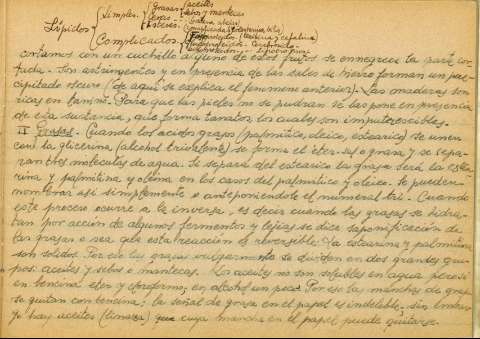 Lípidos { Simples { Grasas { aceites
sebos y mantecas
Ceras
Esteres
Complicados { lecitina y cefalina
cortamos con un cuchillo alguno de estos frutos se ennegrece la parte cor-
tada. Son astringentes y en presencia de las sales de hierro forman un pre-
cipitado oscuro (de aquí se explica el fenómeno anterior). Las maderas son
ricas en tanino. Para que las pieles no se pudran se las pone en presencia
de esta sustancia, que forma tanatos, los cuales son imputrescibles.
II Grasas. Cuando los ácidos grasos (palmítico, oleico, esteárico) se unen
con la glicerina (alcohol trivalente) se forma el éter-sal o grasa y se sepa-
ran tres moléculas de agua. Si separa del esteárico la grasa será la estea-
rina y palmitina y oleina en los casos del palmítico y oleico. Se pueden
nombrar así simplemente o anteponiéndole el numeral tri-. Cuando
este proceso ocurre a la inversa, es decir cuando las grasas se hidra-
tan por acción de algunos fermentos y lejías se dice saponificación de
las grasas o sea que esta reacción es reversible. La estearina y palmitina
son sólidos. Por eso las grasas vulgarmente se dividen en dos grandes gru-
pos: aceites y sebos o mantecas. Los aceites no son solubles en agua pero sí
en bencina éter y cloroformo; en alcohol un poco. Por eso las manchas de grasa
se quitan con bencina; la señal de grasa en el papel es indeleble, sin embar-
go hay aceites (linaza) cuya mancha en el papel puede quitarse.